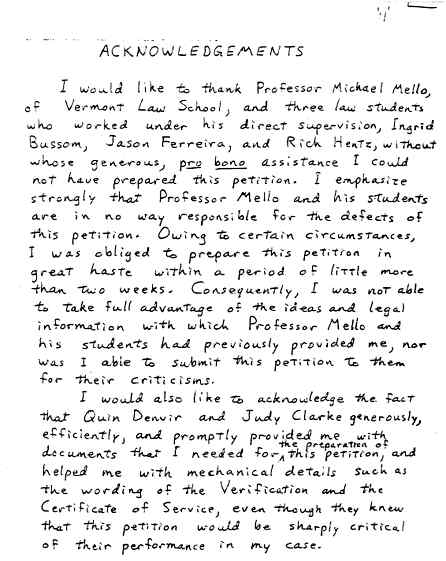 ACKNOWLEDGEMENTS
I would like to thank Professor Michael Mello,
of Vermont Law School, and three law students
who worked under his direct supervision, Ingrid
Bussom, Jason Ferreira, and Rich Hentz, without
whose generous, pro bono assistance I could
not have prepared this petition. I emphasize
strongly that Professor Mello and his students
are in no way responsible for the defects of
this petition. Owing to certain circumstances,
I was obliged to prepare this petition in
great haste within a period of little more
than two weeks. Consequently, I was not able
to take full advantage of the ideas and legal
information with which Professor Mello and
his students had previously provided me, nor
was I able to submit this petition to them
for their criticisms.
I would also like to acknowledge the fact
that Quin Denvir and Judy Clarke generously,
efficiently, and promptly provided me with
documents that I needed for the preparation of this petition, and
helped me with mechanical details such as
the wording of the Verification and the
Certificate of Service, even though they knew
that this petition would be sharply critical
of their performance in my case.